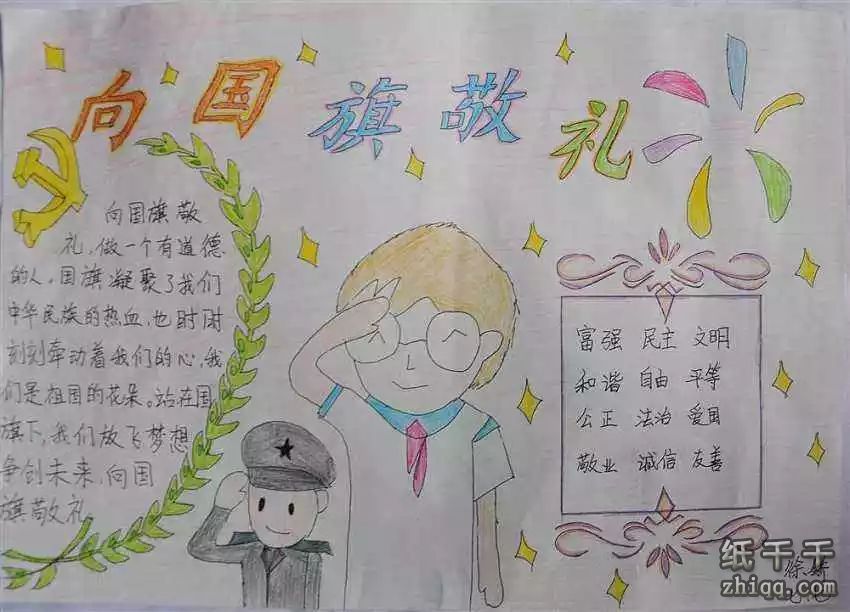 向国旗敬礼
向国旗敬
礼,做一个有道德
的人。国旗凝聚了我们
中华民族的热血,也时时
刻刻牵动着我们的心,我
们是祖国的花朵。站在国
旗下,我们放飞梦想
争创未来,向国
旗敬礼
富强 民主 文明
和谐 自由 平等
公正 法治 爱国
敬业 诚信 友善
徐娇
纸千千
zhiqq.com